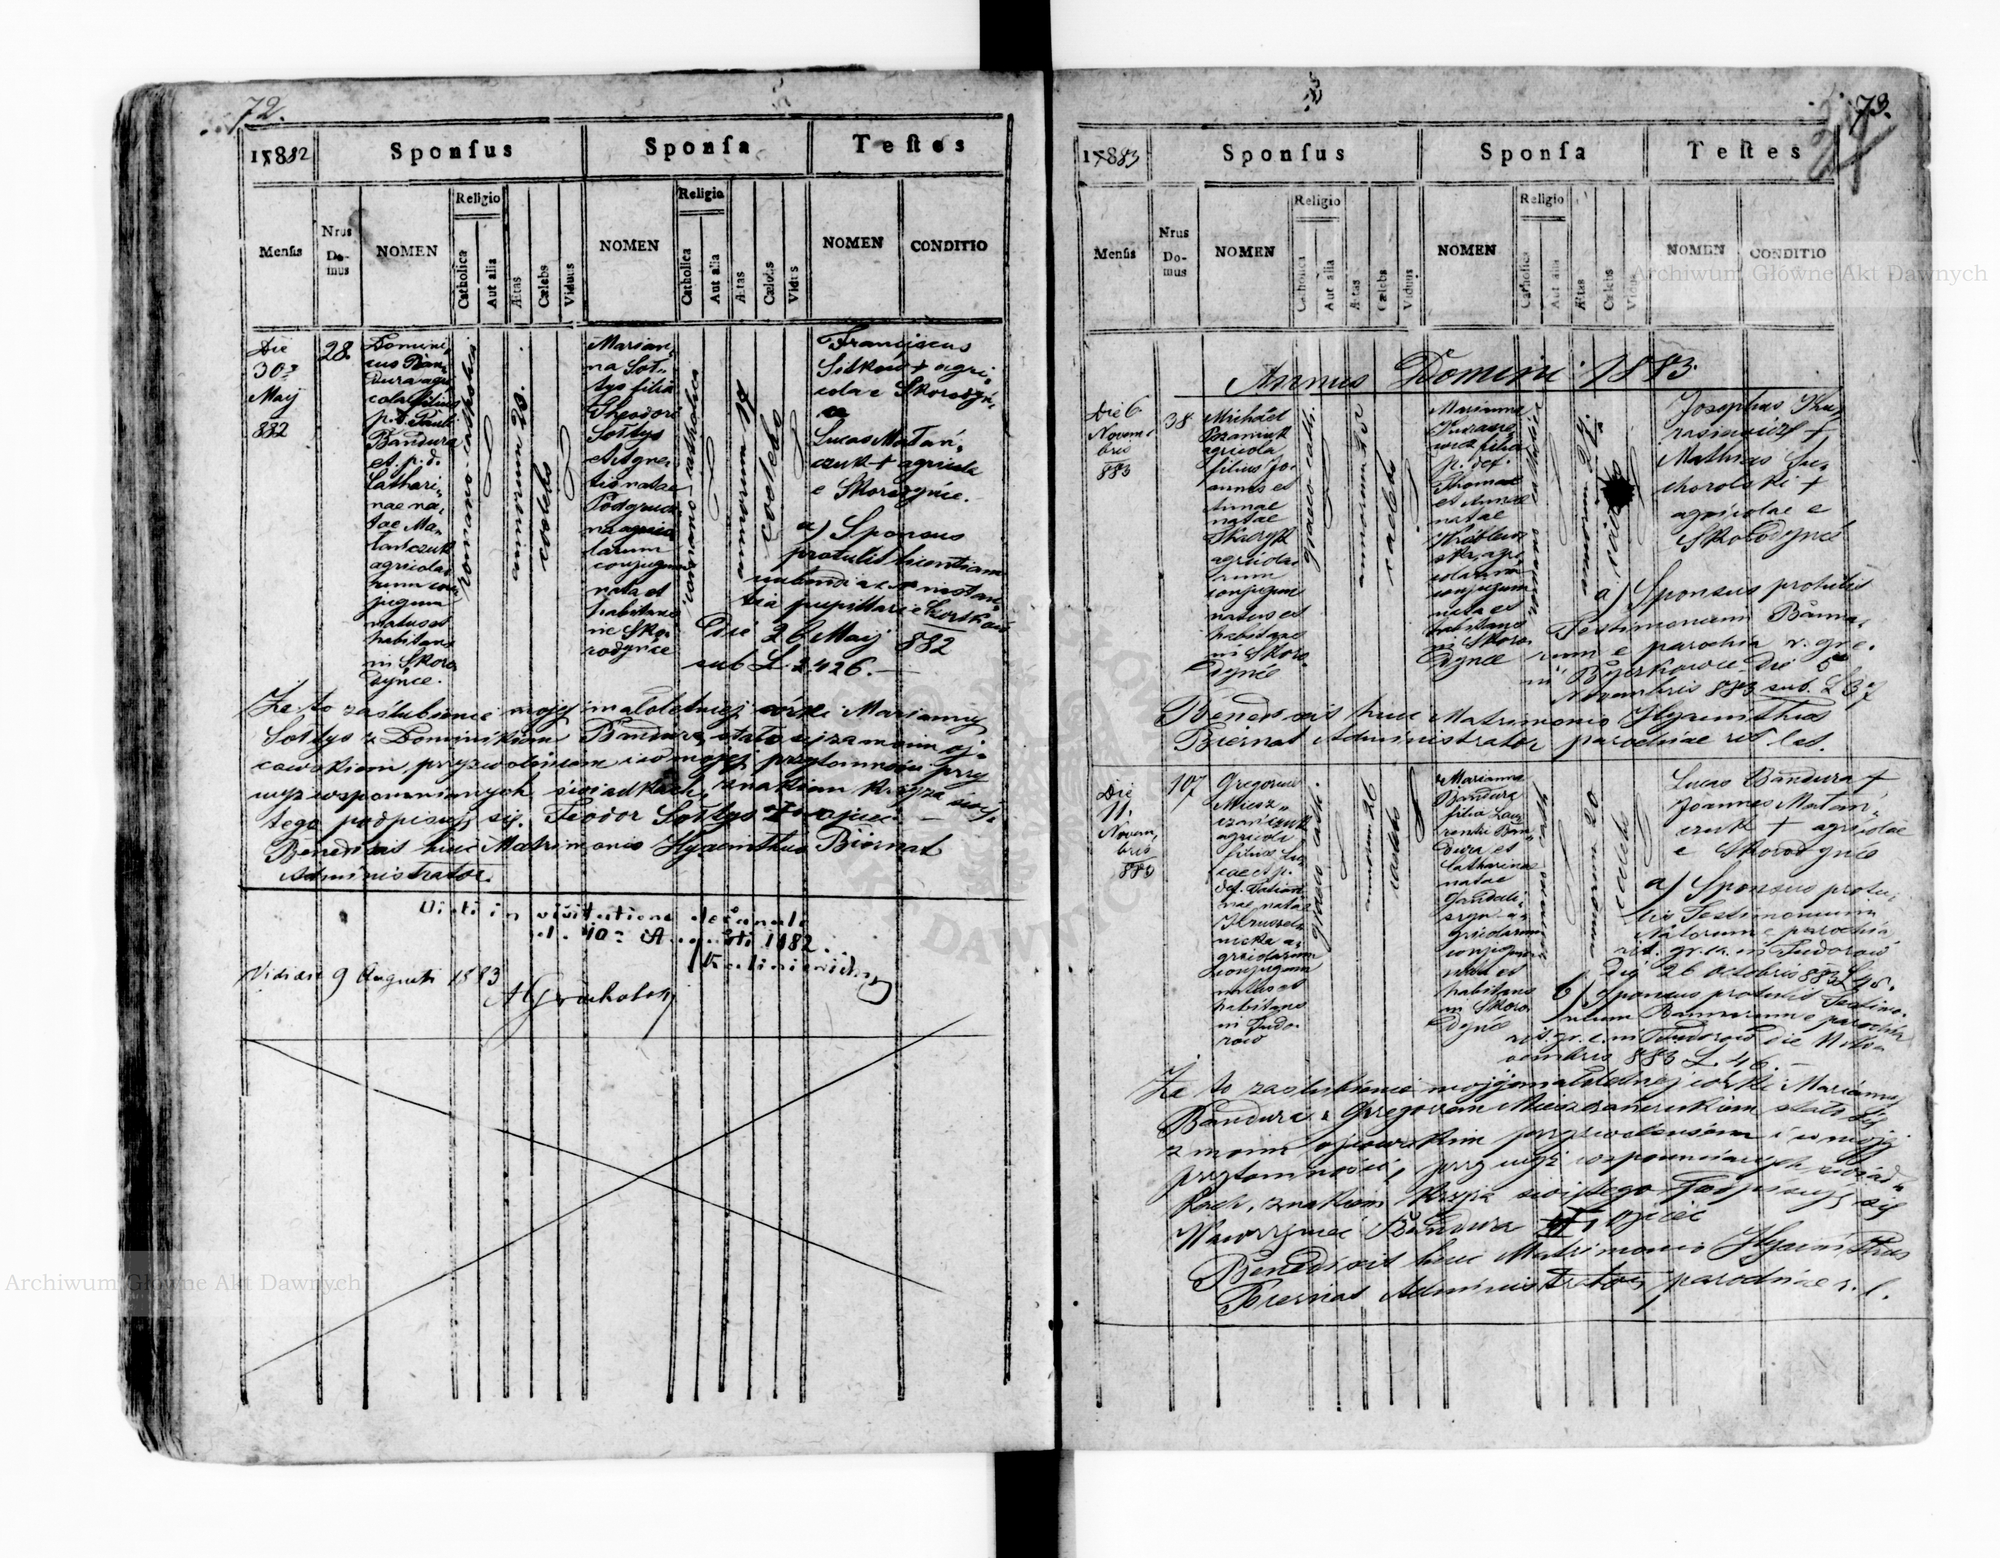 72.
1882
Sponsus
Sponsa
Testes
Mensis
Nrus Domus
NOMEN
Religio
Catholica
Aut alia
Ætas
Cælebs
Viduus
NOMEN
Religio
Catholica
Aut alia
Ætas
Cælebs
Vidua
NOMEN
CONDITIO
Die
30
Maij
882
28.
Domini
cus Ban
dura agri
cola filius
p. d. Pauli
Bandura
et p. d.
Cathari
nae na
tae Ma
tanczuk
agricola
rum con
jugum
natus et
habitans
in Skoro
dyńce.
romano-catholica
annorum 23.
coelebs
Marian
na Soł
tys filia
Theodori
Sołtys
et Agne
tis natae
Podgrud
na agrico
larum
conjugum
nata et
habitans
in Sko
rodyńce
romano-catholica
annorum 17
coelebs
Franciscus
Sitkow + agri
cola e Skorodyń
ce
Lucas Matań
czuk + agricola
e Skorodyńce.
a) Sponsus
protulit licentiam
nubendi a c. r. instan
tia pupillari e Czortków
Die 26 Maij 882
sub L. 2426.
Że to zaślubienie mojej małoletniej córki Marianny
Sołtys z Dominikiem Bandurą stało się za moim oj
cowskiem przyzwoleniem i w mojej przytomności przy
wyż wspomnianych świadkach, znakiem krzyża świę
tego podpisuję się. Teodor Sołtys + ojciec
Benedixit huic Matrimonio Hyacinthus Biernat
Administrator.
Vidi in visitatione decanali
d. 10 Augusti 1882.
Vidi die 9 Augusti 1883
73.
1883
Sponsus
Sponsa
Testes
Mensis
Nrus Domus
NOMEN
Religio
Catholica
Aut alia
Ætas
Cælebs
Viduus
NOMEN
Religio
Catholica
Aut alia
Ætas
Cælebs
Vidua
NOMEN
CONDITIO
Annus Domini 1883.
Die 6
Novem
bris
883
38
Michael
agricola
filius Jo
annis et
Annae
natae
agricola
rum
conjugum
natus et
habitans
in Skoro
dyńce
graeco-cath.
caelebs
Marianna
filia
p. def.
Thomae
et Annae
natae
conjugum
nata et
habitans
in Skoro
dyńce
romano catholica
a)
Josephus
+
Mathias Su
chorolski +
agricolae e
Skorodyńce
a) Sponsus protulit
Testimonium Banno
rum e parochia r. gr.
in die 6
Novembris 883 sub. L 37
Benedixit huic Matrimonio Hyacinthus
Biernat Administrator parochiae rit. lat.
Die
11
Novem
bris
883
107
Gregorius
Miesz
czańczuk
agricola
filius Lu
cae et p.
def. Tatian
nae natae
agricolarum
conjugum
natus et
habitans
in Tudo
rów
graeco cath.
annorum 26
caelebs
Marianna
Bandura
filia Lau
rentii Ban
dura et
Catharinae
natae
agricolarum
conjugum
nata et
habitans
in Skoro
dyńce
romano cath
annorum 20
caelebs
Lucas Bandura +
Joannes Matań
czuk + agricolae
e Skorodyńce
a) Sponsus protu
lit Testimonium
Natorum e parochia
rit. gr. c. in Tudorow
Die 26 Octobris 883 L 45.
b) Sponsus protulit Testimo
nium Bannorum e parochia
rit. gr. c. in Tudorow die 11 No
vembris 883 L 46.
Że to zaślubienie mojej małoletniej córki Marianny
Bandura z Gregorem Mieszczańczukiem stało się
z moim ojcowskim przyzwoleniem i w mojej
przytomności, przy wyż wspomnianych świad
kach, znakiem krzyża świętego podpisuję się
Wawrzyniec Bandura + ojciec
Benedixit huic Matrimonio Hyacinthus
Biernat Administrator parochiae r. l.
Archiwum Główne Akt Dawnych
Archiwum Główne Akt Dawnych